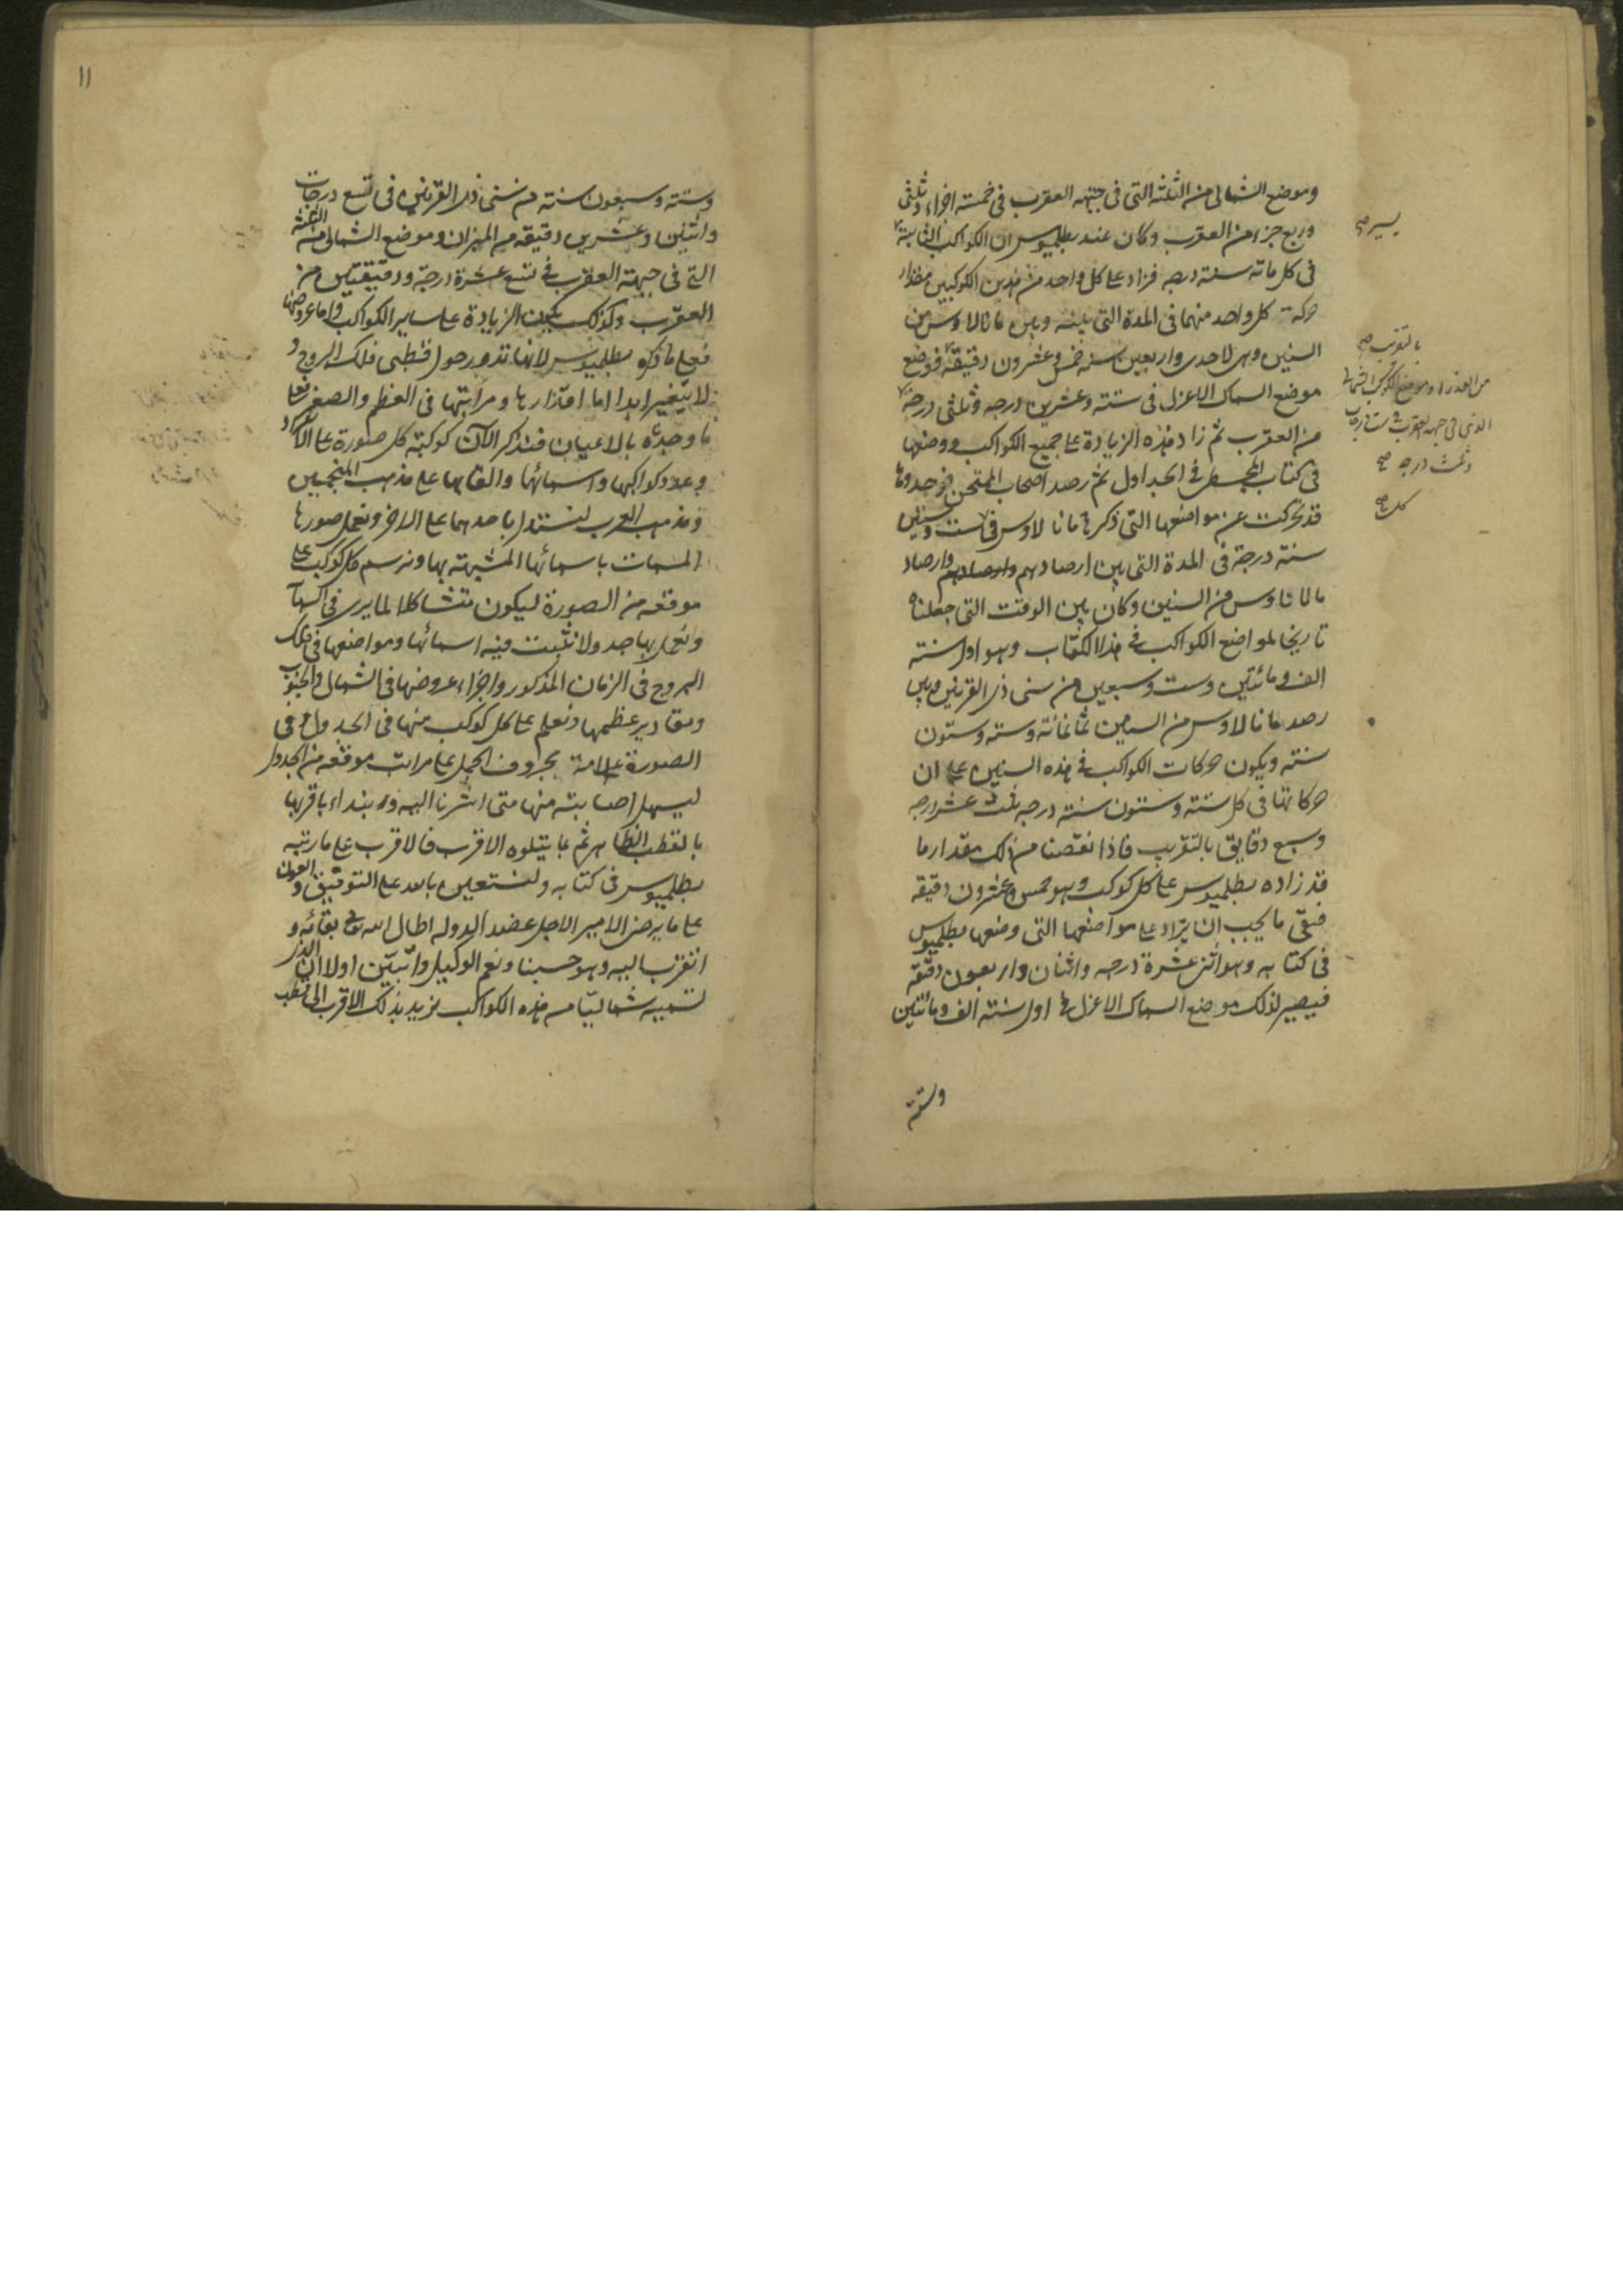 وموضع الشمالى من الثلثة التى فى جبهه العقرب فى خمسة اجزاء وثلثى
وربع جزء من العقرب وكان عند بطلميوس ان الكواكب الثابتة
فى كل مائه سنته درجه فزاد على كل واحد من هذين الكوكبين مقدار
حركة كل واحد منهما فى المدة التى بينه وبين مانالاوس من
السنين وهى لاحدى واربعين سنه خمس وعشرون دقيقة فوضع
موضع السماك الاعزل فى ستة وعشرين درجه وثلثى درجه
من العقرب ثم زاد هذه الزيادة على جميع الكواكب ووضعها
فى كتاب المجسطى فى الجداول ثم رصد اصحاب الممتحن فوجدوها
قد تحركت عن مواضعها التى ذكرها مانالاوس فى ست وستين
سنته درجة فى المدة التى بين ارصادهم وارصاد
مالاناوس من السنين وكان بين الوقت التى جعلناه
تاريخا لمواضع الكواكب فى هذا الكتاب وهو اول سنته
الف ومائتين وست وسبعين من سنى ذى القرنين وبين
رصد مانالاوس من السنين ثمانمائة وسته وستون
سنته ويكون حركات الكواكب فى هذه السنين على ان
حركاتها فى كل ستة وستون سنته درجه ثلث عشر درجه
وسبع دقايق بالتقريب فاذا نقصنا من ذلك مقدار ما
قد زاده بطلميوس على كل كوكب وهو خمس وعشرون دقيقه
فبقى ما يجب ان يزاد على مواضعها التى وضعها بطلميوس
فى كتابه وهو اثنى عشرة درجه واثنان واربعون دقيقة
فيصير لذلك موضع السماك الاعزل فى اول سنته الف ومائتين
وستة
يسير صح
بالتقريب صح
من العذراء وموضع الكوكب الشمالى
الذى فى جبهه العقرب فى ست درجات
وثلث درجه صح
كل صح
١١
وستة وسبعون سنته من سنى ذى القرنين فى تسع درجات
واثنين وعشرين دقيقه من الميزان وموضع الشمالى من الثلثة
التى فى جبهة العقرب فى تسع عشرة درجة ودقيقتين من
العقرب وكذلك يكون الزيادة على ساير الكواكب واما عروضها
فعلى ما ذكره بطلميوس لانها تدور حول قطبى فلك البروج و
لا يتغير ابدا اما اقدارها ومراتبها فى العظم والصغر فعلى
ما وجدته بالاعيان فنذكر الآن كوكبة كل صورة على الانفراد
وعدد كواكبها واسمائها والقابها على مذهب المنجمين
ومذهب العرب ليستدل باحدهما على الاخر ونعمل صورها
المسمات باسمائها المشبهته بها ونرسم كل كوكب على
موقعه من الصورة ليكون متشاكلا لما يرى فى السماء
ونعمل بها جدولا نثبت فيه اسمائها ومواضعها فى فلك
البروج فى الزمان المذكور واجزاء عروضها فى الشمال والجنوب
ومقادير عظمها ونعلم على كل كوكب منها فى الجدول وفى
الصورة علامة بحروف الجمل على مراتب موقعه من الجدول
ليسهل اصابته منها متى اشرنا اليه ونبتداء باقربها
بالقطب الظاهر ثم ما يتلوه الاقرب فالاقرب على ما رتبه
بطلميوس فى كتابه ونستعين بالله على التوفيق والعون
على ما يرضى الامير الاجل عضد الدوله اطال الله بقائه و
اتقرب اليه وهو حسبنا ونعم الوكيل وابين اولا ان الذى
نسميه شماليا من هذه الكواكب نريد بذلك الاقرب الى قطب